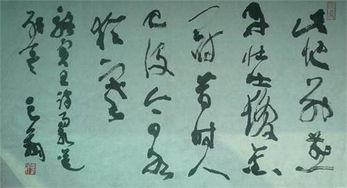 此地别燕
丹壮士发冲
冠昔时人
已没今日水
犹寒
骆宾王诗易水送
别